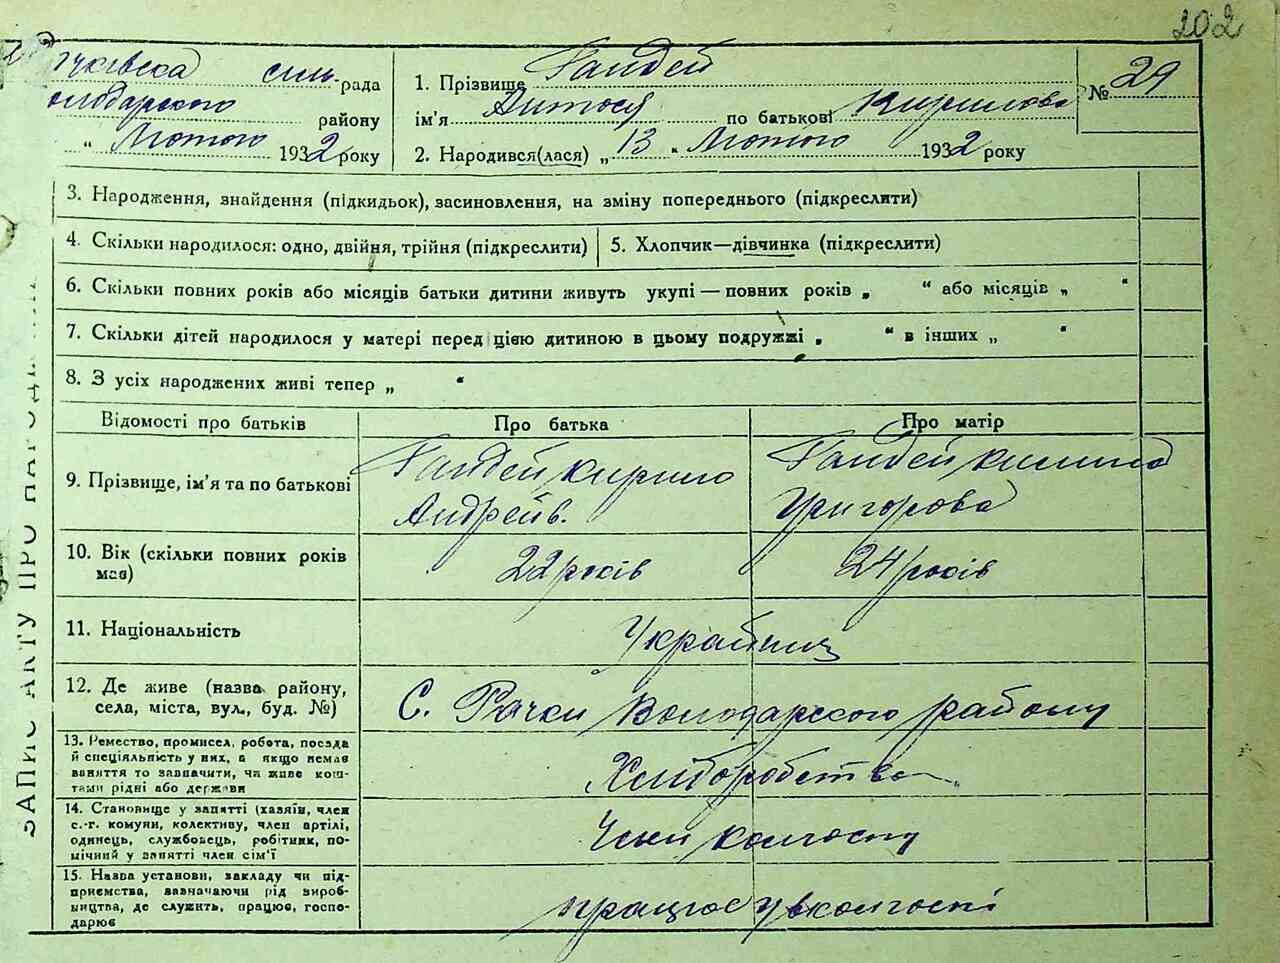 202
сіль. рада
району
" Лютого 1932 року
1. Прізвище Гандей
ім'я Антося по батькові Кирилова
2. Народився(лася) „ 13 " Лютого 1932 року
№ 29
3. Народження, знайдення (підкидьок), засиновлення, на зміну попереднього (підкреслити)
4. Скільки народилося: одно, двійня, трійня (підкреслити)
5. Хлопчик—дівчинка (підкреслити)
6. Скільки повних років або місяців батьки дитини живуть укупі — повних років „ " або місяців „ "
7. Скільки дітей народилося у матері перед цією дитиною в цьому подружжі „ " в інших „ "
8. З усіх народжених живі тепер „ "
Відомості про батьків
Про батька
Про матір
9. Прізвище, ім'я та по батькові
Гандей Кирило
Андрейв.
Гандей
Григорова
10. Вік (скільки повних років
має)
22 років
24 років
11. Національність
Українц
12. Де живе (назва району,
села, міста, вул., буд. №)
С. Рачки Володарского району
13. Ремество, промисел, робота, посада
й спеціяльність у них, а якщо немає
заняття то зазначити, чи живе кош-
тами рідні або держави
Хліборобства
14. Становище у занятті (хазяїн, член
с.-г. комуни, колективу, член артілі,
одинець, службовець, робітник, по-
мічний у занятті член сім'ї
Член колгоспу
15. Назва установи, закладу чи під-
приємства, зазначаючи рід вироб-
ництва, де служить, працює, госпо-
дарює
працює у колгоспі
ЗАПИС АКТУ ПРО